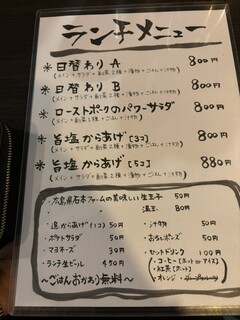 ランチメニュー
* 日替わり A 800円
(メイン+サラダ+副菜2種+漬物+ごはん+汁物)
* 日替わり B 800円
(メイン+サラダ+副菜2種+漬物+ごはん+汁物)
* ローストポークのパワーサラダ 800円
* 旨塩からあげ [3コ] 800円
* 旨塩からあげ [5コ] 880円
・広島県石本ファームの美味しい生玉子 50円
温玉 80円
・追からあげ(1コ) 50円
・ポテトサラダ 50円
・マヨネーズ 30円
・ランチ生ビール 450円
・汁物 50円
・おろしポンズ 50円
・セットドリンク 100円
コーヒー(ホット or アイス)
紅茶(ホット)
オレンジ
〜ごはんおかわり無料〜